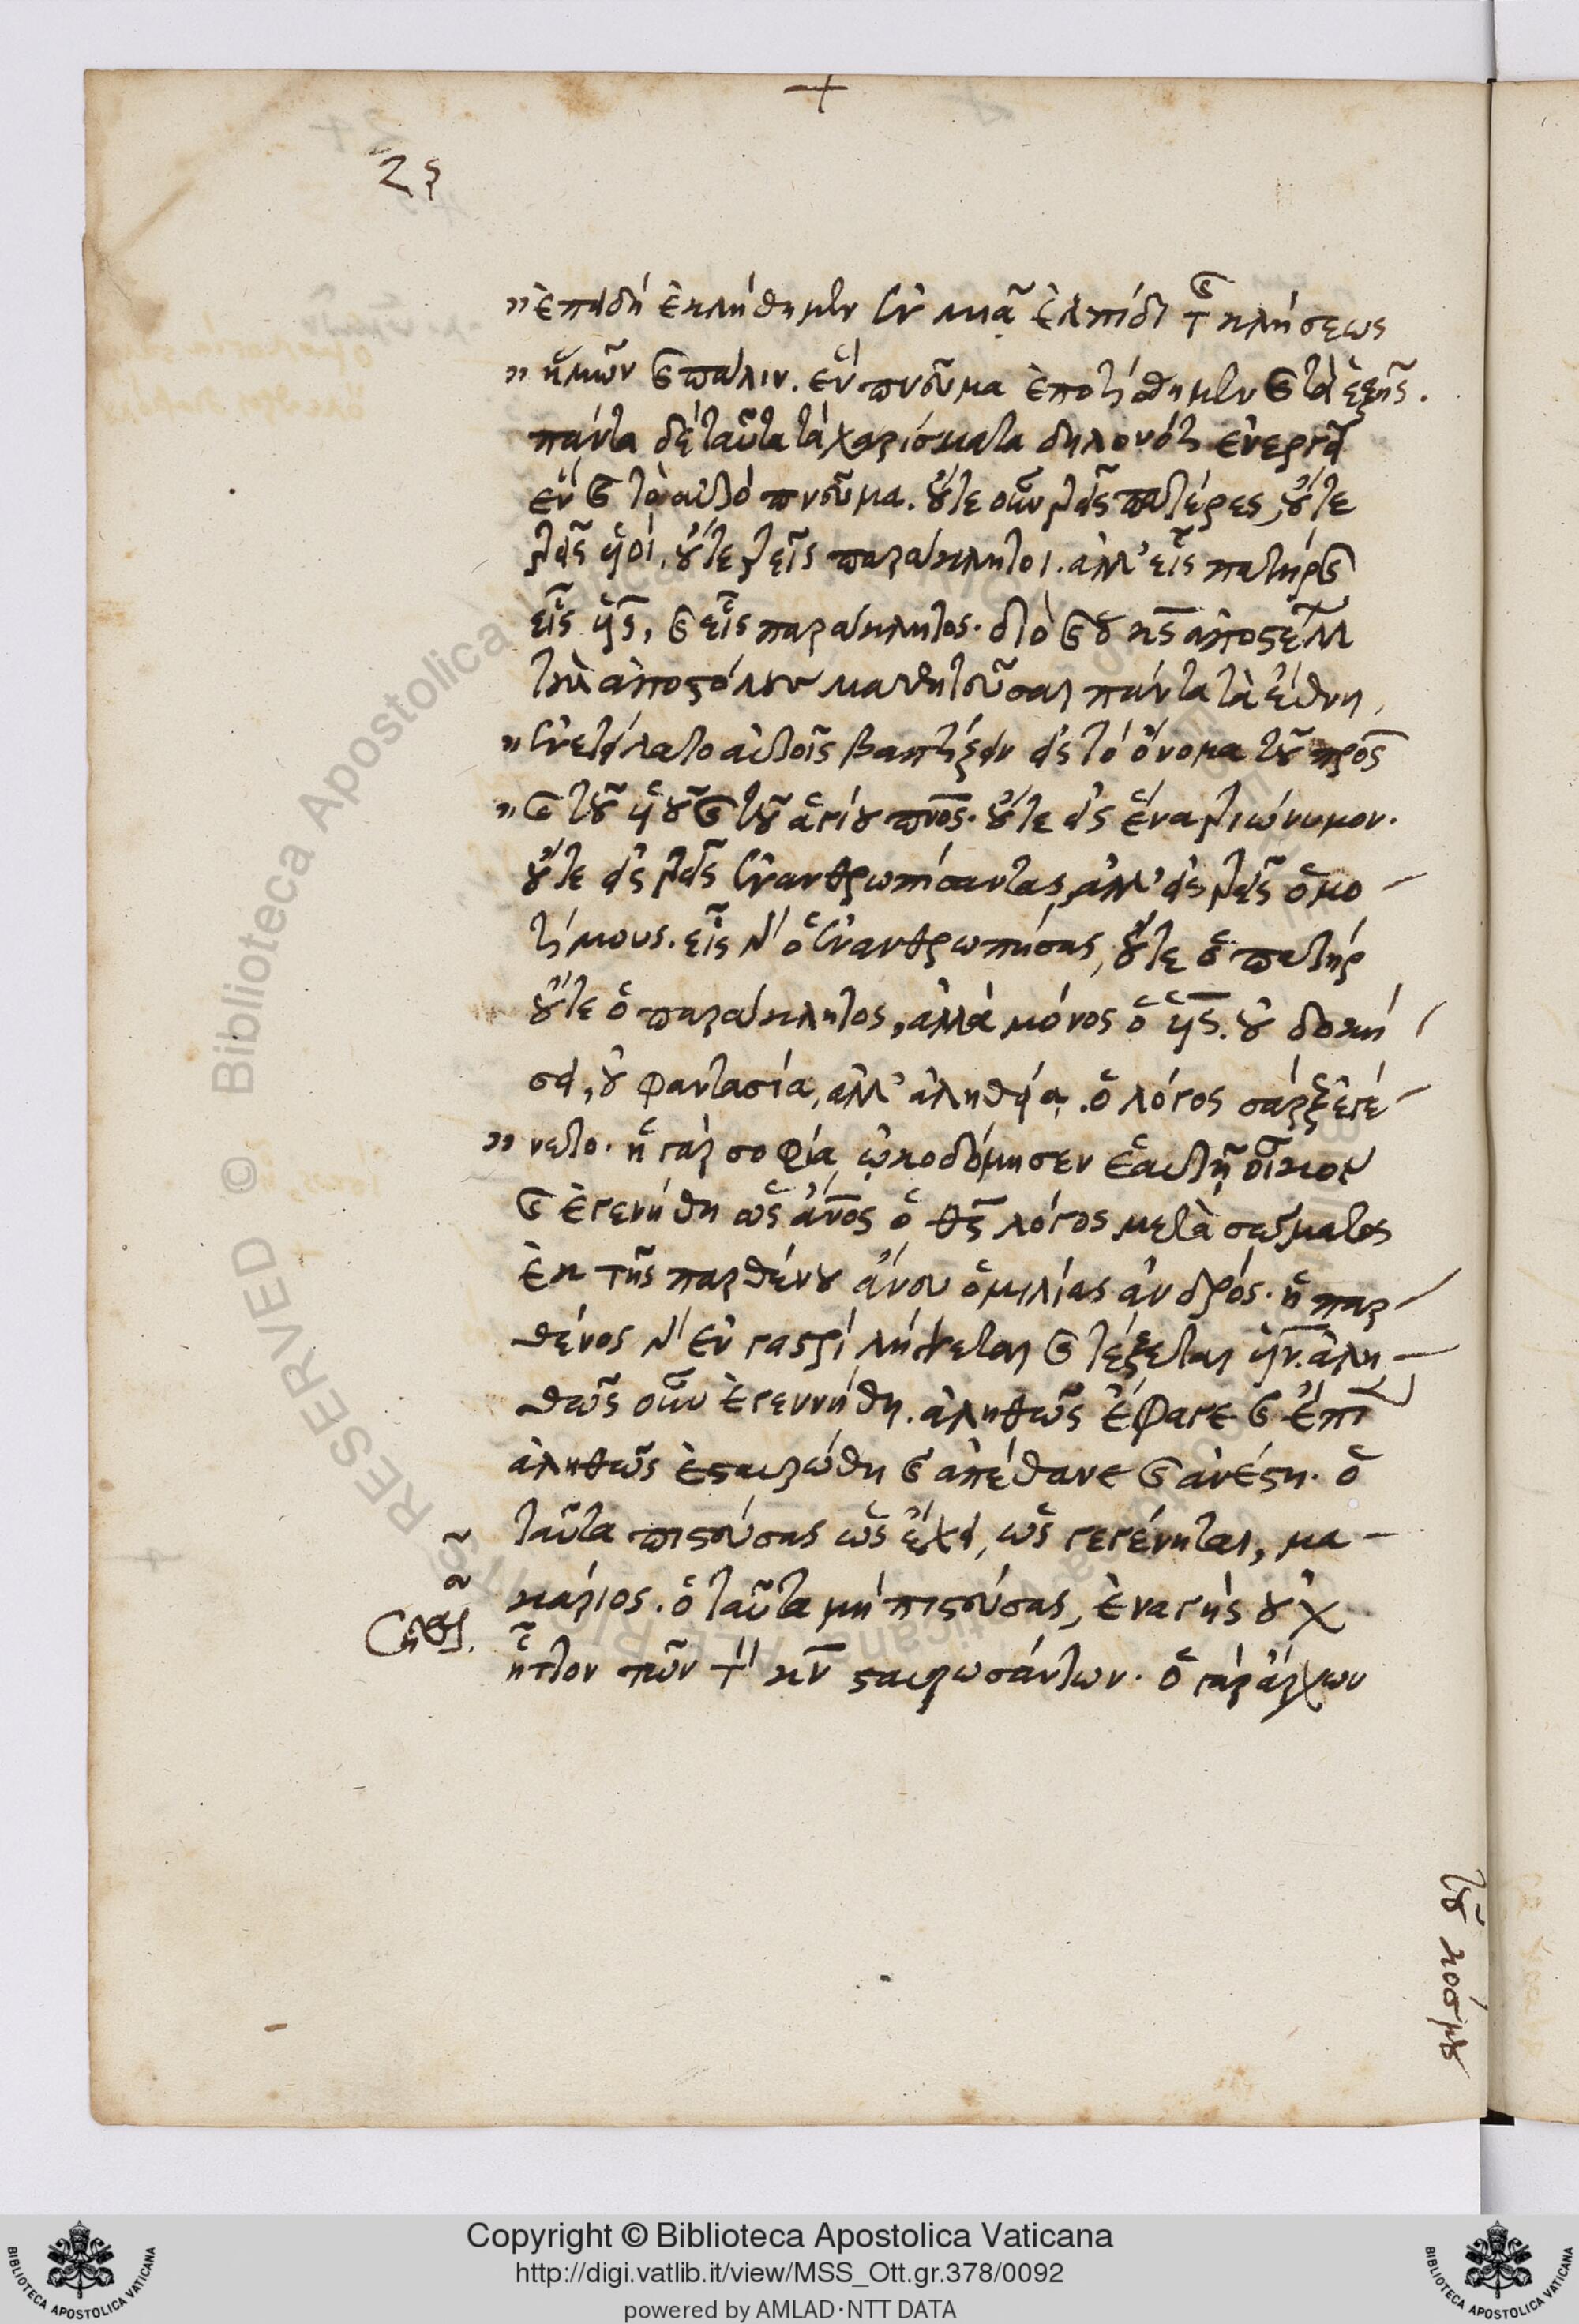 +
ἐπειδὴ ἐκλήθημεν ἐν μιᾷ ἐλπίδι τῆς κλήσεως
ἡμῶν καὶ πάλιν. ἓν πνεῦμα ἐποτίσθημεν καὶ τὰ ἑξῆς.
πάντα δὲ ταῦτα τὰ χαρίσματα δηλονότι ἐνεργεῖ
ἓν καὶ τὸ αὐτὸ πνεῦμα. οὔτε οὖν τρεῖς πατέρες, οὔτε
τρεῖς υἱοί, οὔτε τρεῖς παράκλητοι. ἀλλ' εἷς πατὴρ καὶ
εἷς υἱς, καὶ εἷς παράκλητος. διὸ καὶ ὁ κς ἀποστέλλ
τοὺς ἀποστόλους μαθητεῦσαι πάντα τὰ ἔθνη,
ἐνετείλατο αὐτοῖς βαπτίζειν εἰς τὸ ὄνομα τοῦ προς
καὶ τοῦ υἱοῦ καὶ τοῦ ἁγίου πνος. οὔτε εἰς ἕνα τριώνυμον.
οὔτε εἰς τρεῖς ἐνανθρωπήσαντας, ἀλλ' εἰς τρεῖς ὁμο
τίμους. εἷς δ' ὁ ἐνανθρωπήσας, οὔτε ὁ πατήρ
οὔτε ὁ παράκλητος, ἀλλὰ μόνος ὁ υἱς. οὐ δοκή
σει, οὐ φαντασία, ἀλλ' ἀληθείᾳ. ὁ λόγος σὰρξ ἐγέ
νετο. ἡ γὰρ σοφία ᾠκοδόμησεν ἑαυτῇ οἶκον
καὶ ἐγενήθη ὡς ἀνος ὁ θς λόγος μετὰ σώματος
ἐκ τῆς παρθένου ἄνευ ὁμιλίας ἀνδρός. ἡ παρ
θένος δ' ἐν γαστρὶ λήψεται καὶ τέξεται υἱν. ἀλη
θῶς οὖν ἐγεννήθη. ἀληθῶς ἔφαγε καὶ ἔπι
ἀληθῶς ἐσταυρώθη καὶ ἀπέθανε καὶ ἀνέστη. ὁ
ταῦτα πιστεύσας ὡς ἔχει, ὡς γεγένηται, μα
κάριος. ὁ ταῦτα μὴ πιστεύσας, ἐναγὴς οὐχ
ἧττον τῶν τὸν κν σταυρωσάντων. ὁ γὰρ ἄρχων
τοῦ κόσμου
Copyright © Biblioteca Apostolica Vaticana
http://digi.vatlib.it/view/MSS_Ott.gr.378/0092
powered by AMLAD·NTT DATA
BIBLIOTECA APOSTOLICA VATICANA
BIBLIOTECA APOSTOLICA VATICANA